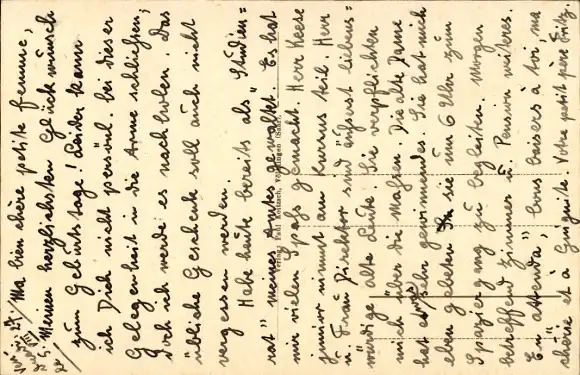 Ma bien chère petite femme,
Meinen herzlichsten Glückwunsch
zum Geburtstage! Leider kann
ich Dich nicht persönl. bei dieser
Gelegenheit in die Arme schließen;
doch ich werde es nachholen. Das
übliche Geschenk soll auch nicht
vergessen werden.
Habe heute bereits als "Studien=
rat" meines Amtes gewaltet. Es hat
mir vielen Spaß gemacht. Herr Keese
junior nimmt am Kursus teil. Herr
u. Frau Direktor sind äußerst liebens=
würdige alte Leute. Sie verpflichten
mich über die Maßen. Die alte Dame
hat etwas sehr gewinnendes. Sie hat mich
eben gebeten sie um 6 Uhr zum
Spaziergang zu begleiten. Morgen
betreffend Zimmer u. Pension weiteres.
En attendant, bons baisers à toi ma
chérie et à Guiguite. Votre petit père Fritz.